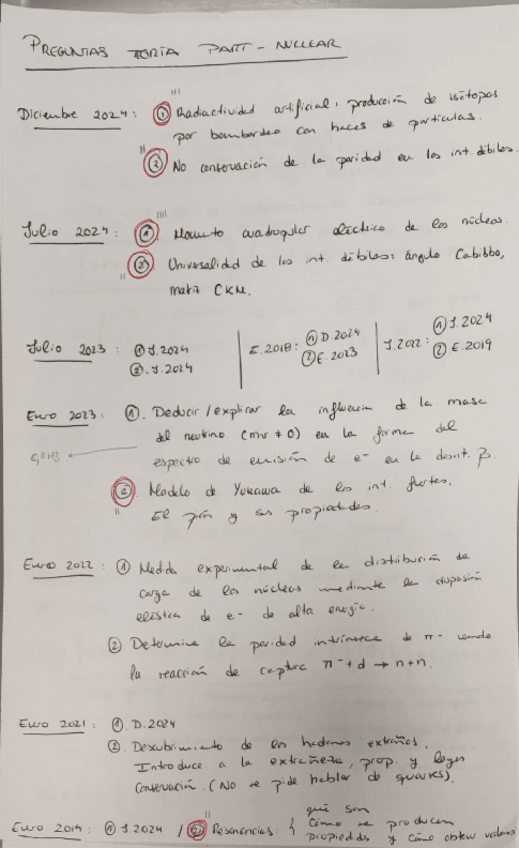 PREGUNTAS TEORÍA PART - NUCLEAR
Diciembre 2024: ① Radiactividad artificial: producción de isótopos
por bombardeo con haces de partículas.
② No conservación de la paridad en las int. débiles.
Julio 2024: ① Momento cuadrupolar eléctrico de los núcleos.
② Universalidad de las int. débiles: ángulo Cabibbo,
matriz CKM.
Julio 2023: ① J.2024
② J.2024
E.2018: ① D.2024
② E.2023
J.2022: ① J.2024
② E.2019
Enero 2023: ①. Deducir/explicar la influencia de la masa
del neutrino (mν ≠ 0) en la forma del
espectro de emisión de e⁻ en la desint. β.
② Modelo de Yukawa de las int. fuertes.
El pión y sus propiedades.
Enero 2022: ① Medida experimental de la distribución de
carga de los núcleos mediante la dispersión
elástica de e⁻ de alta energía.
② Determine la paridad intrínseca de π⁻ usando
la reacción de captura π⁻+d → n+n.
Enero 2021: ①. D.2024
②. Descubrimiento de los hadrones extraños.
Introduce a la extrañeza, prop. y leyes
conservación. (No se pide hablar de quarks).
Enero 2019: ① J.2024 / ② Resonancias: { qué son
cómo se producen
propiedds y cómo obtener valores